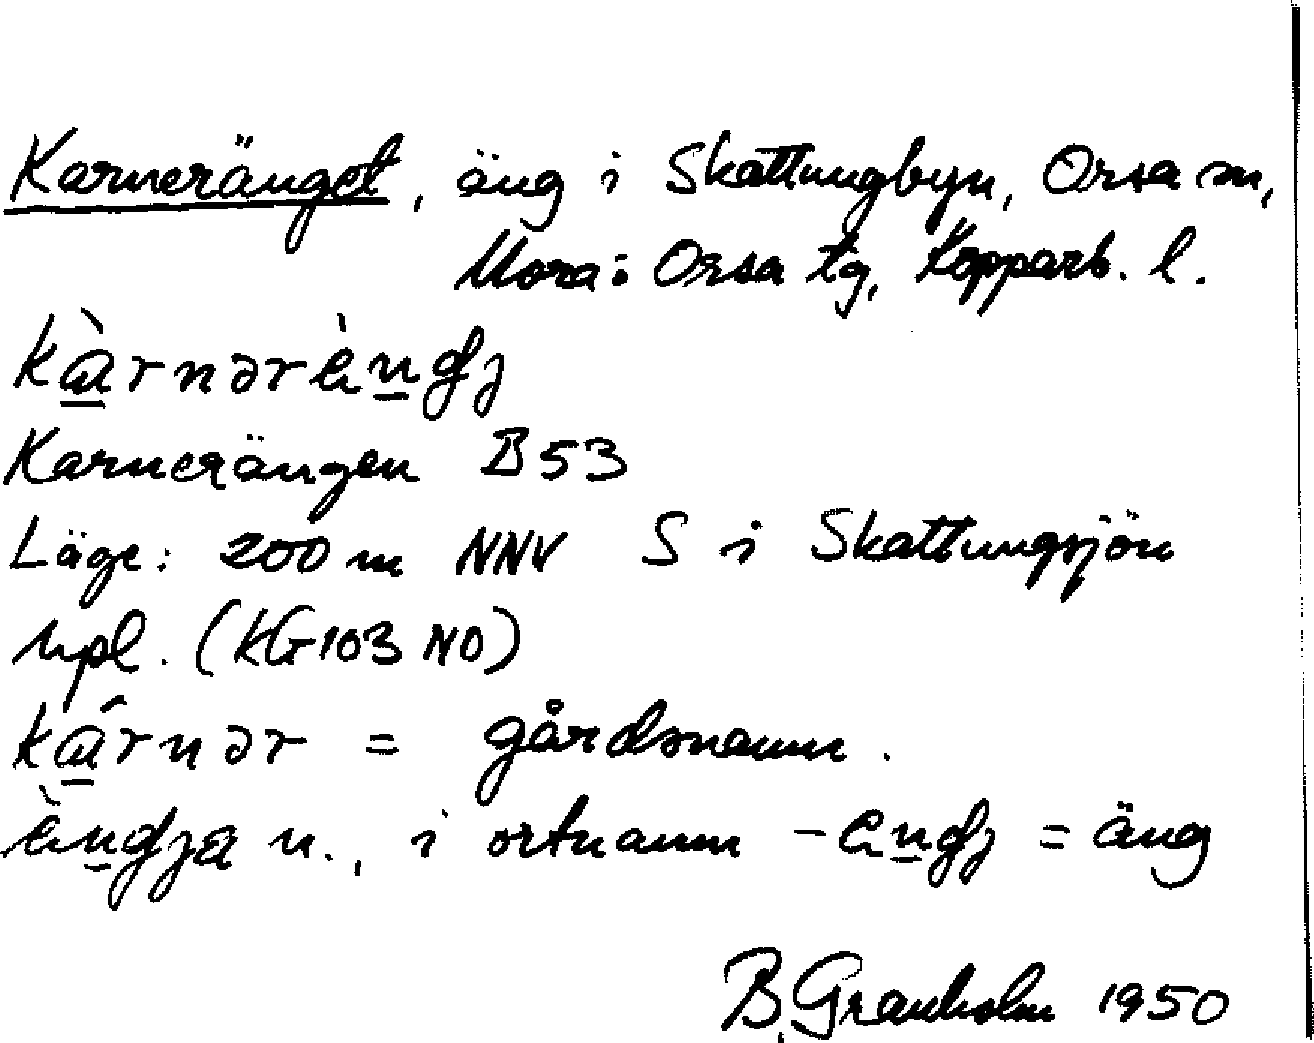 Karneränget, äng i Skattungbyn, Orsa sn,
Mora: Orsa tg, Kopparb. l.
kàrnərèngj
Karnerängen B53
Läge: 200 m NNV S i Skattungsjön
upl. (KG 103 NO)
kárnər = gårdsnamn.
èngja n., i ortnamn -engj = äng
B. Granholm 1950